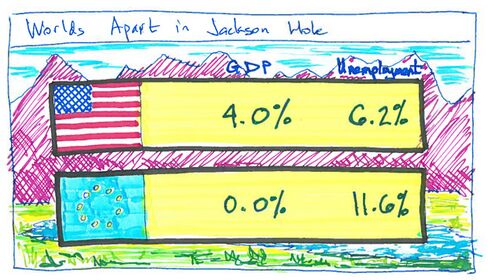 Worlds Apart in Jackson Hole
GDP Unemployment
4.0% 6.2%
0.0% 11.6%